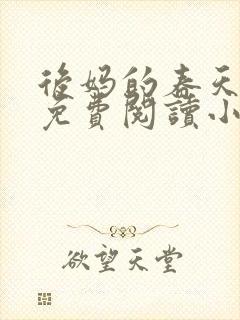 後妈的春天
免費閱讀小
欲望天堂